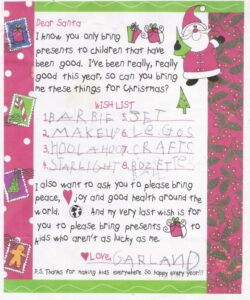 Dear Santa
I know you only bring
presents to children that have
been good. I've been really, really
good this year, so can you bring
me these things for Christmas?
WISH LIST
1. BARBIE 5. SET
2. MAKEUP 6. LeGOS
3. HOOLAHOO 7. CRAFTS
4. STARLIGHT 8.
I also want to ask you to please bring
peace, joy and good health around the
world. And my very last wish is for
you to please bring presents to
kids who aren't as lucky as me.
Love, GARLAND
P.S. Thanks for making kids everywhere so happy every year!!